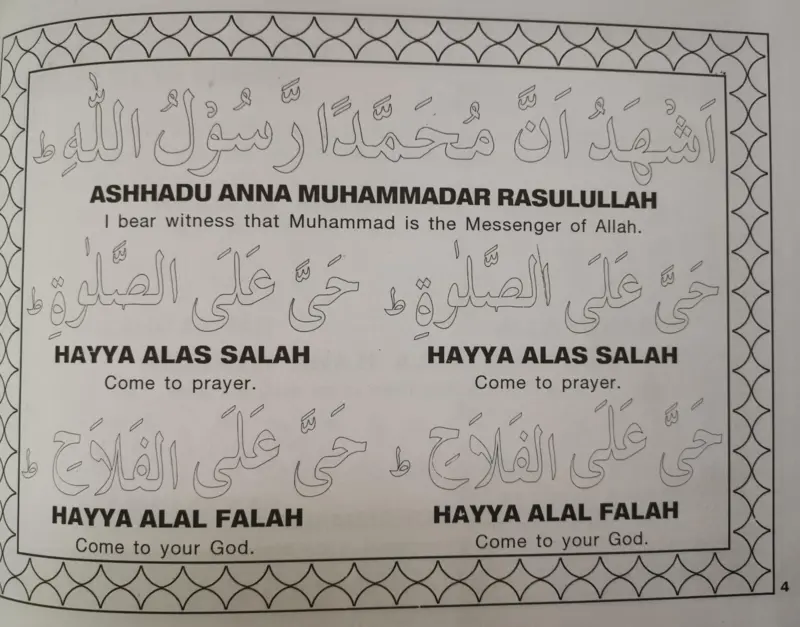 اَشْهَدُ اَنَّ مُحَمَّدًا رَّسُوْلُ اللّٰهِ ط
ASHHADU ANNA MUHAMMADAR RASULULLAH
I bear witness that Muhammad is the Messenger of Allah.
حَیَّ عَلَی الصَّلٰوةِ ط حَیَّ عَلَی الصَّلٰوةِ ط
HAYYA ALAS SALAH HAYYA ALAS SALAH
Come to prayer. Come to prayer.
حَیَّ عَلَی الفَلاَحِ ط حَیَّ عَلَی الفَلاَحِ ط
HAYYA ALAL FALAH HAYYA ALAL FALAH
Come to your God. Come to your God.
4